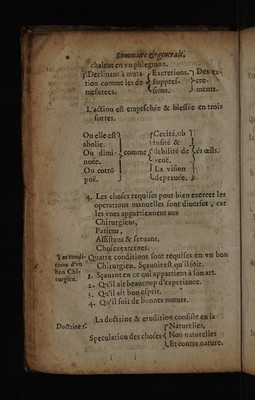 Sommaire & generale,
chaleur en vn phlegmon.
3. Declinant à mata- { Excretions. } Des ex-
tion comme les de { suppres- } cre-
mesurees. { sions. } ments.
L'action est empeschée & blessée en trois
sortes.
Ou elle est } { Cecité, ob }
abolie. } { tusité & }
Ou dimi- } comme { debilité de } és œils.
nuée. } { veuë. }
Ou corrõ } { La vision }
puë. } { deprauée. }
4. Les choses requises pour bien exercer les
operations manuelles sont diuerses, car
les vnes appartiennent aux
Chirurgiens,
Patiens,
Assistans & seruans,
Choses externes.
Les condi-
tions d'vn
bon Chi-
rurgien.
Quatre conditions sont requises en vn bon
Chirurgien. Sçauoir est qu'il soit.
1. Sçauant en ce qui appartient à son art.
2. Qu'il ait beaucoup d'experience.
3. Qu'il ait bon esprit.
4. Qu'il suit de bonnes mœurs.
La doctrine & erudition consiste en la
Doctrine
{ Naturelles,
Speculation des choses { Non naturelles
{ Et contre nature.